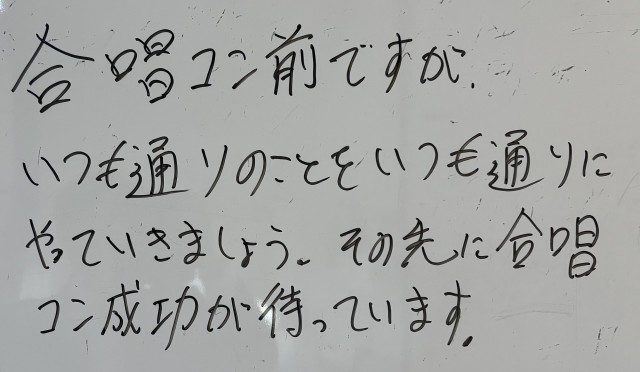 合唱コン前ですが、
いつも通りのことをいつも通りに
やっていきましょう。その先に合唱
コン成功が待っています。